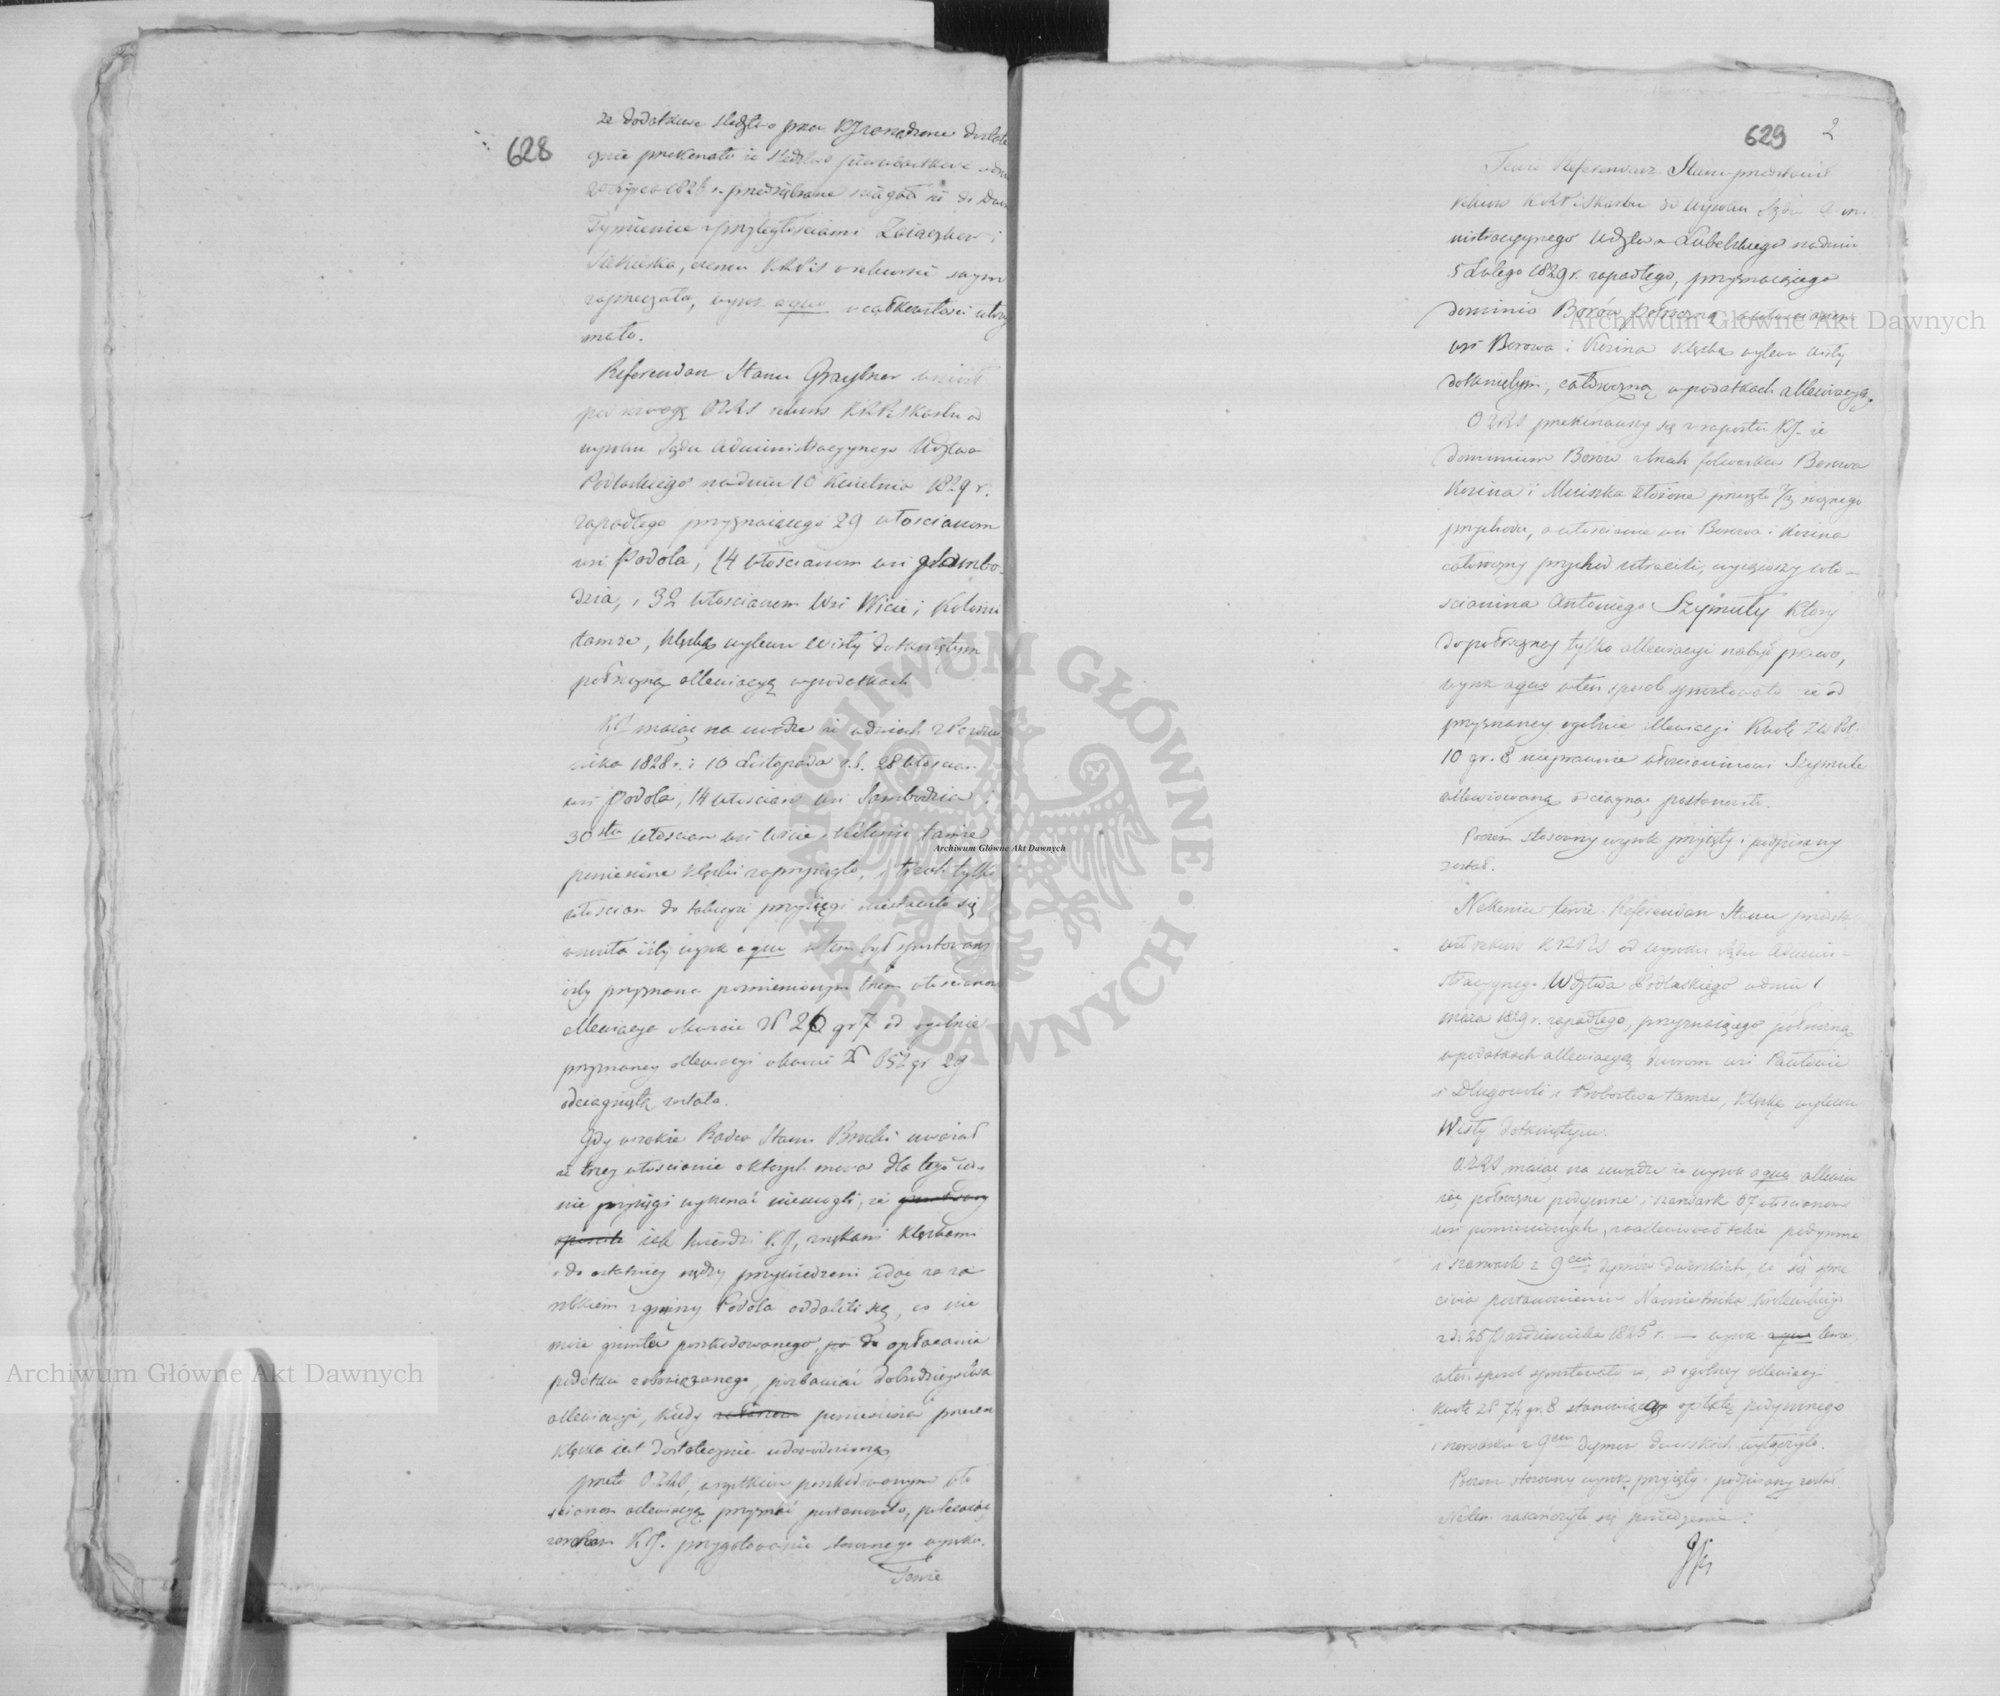 628
że dodatkowe śledztwo przez KJ zarządzone dostate
cznie przekonało iż śledztwo pierwiastkowe w dniu
przedsiębrane ściągało się do Dworu
Tymienice z przyległościami Zaiączków i
w rekursie swym
zaprzeczała, wyrok a quo w całkowitości utrzy
mało.
Referendarz Stanu Graybner wniósł
pod rozwagę OZRS rekurs KRPiSkarbu od
wyroku Sądu Administracyjnego Wdztwa
Podlaskiego na dniu 10 Kwietnia 1829 r.
zapadłego przyznaiącego 29 włościanom
wsi Podola, 14 włościanom wsi
dzia, i 32 włościanom wsi Wicie i Kolonii
tamże, klęską wylewu Wisły dotkniętym
półroczną allewiacyą w podatkach
KJ maiąc na uwadze iż w dniach 2 Paździer
nika 1828 r. i 10 Listopada r. b. 28 włościan
wsi Podola, 14 włościan wsi i
30stu włościan wsi Wicie i Kolonii tamże
poniesione klęski zaprzysięgło, i trzech tylko
włościan do takowej przysięgi niestawiło się
wnosiła iżby wyrok a quo w tem był sprostowany
iżby przyznana pomienionym trzem włościanom
allewiacya w kwocie zł 26 gr 7 od ogólnie
przyznaney allewiacyi w kwocie zł 652 gr 29
odciągniętą została.
Gdy wszakże Radca Stanu uważał
że trzey włościanie o których mowa dla tego je-
nie przysięgi wykonać niemogli, że
iak twierdzi KJ, znękani klęskami
i do ostatniey nędzy przywiedzeni idąc za za
robkiem z gminy Podola oddalili się, co nie
może gruntu poszkodowanego, do opłacania
podatku zobowiązanego, pozbawiać dobrodzieystwa
allewiacyi, kiedy poniesiona przezeń
klęska iest dostatecznie udowodnioną,
przeto OZRS, wszystkim poszkodowanym wło
ścianom allewiacyą przyznać postanowiło, polecaiąc
zarazem KJ. przygotowanie stosownego wyroku.
Tenże
629 2
Tenże Referendarz Stanu przedstawił
rekurs KRPiSkarbu od wyroku Sądu Admi
nistracyjnego Wdztwa Lubelskiego na dniu
5 Lutego 1829 r. zapadłego, przyznaiącego
dominio Borów półroczną a włościanom
wsi Borowa i Kosina klęską wylewu Wisły
dotkniętym, całoroczną w podatkach allewiacyą.
OZRS przekonawszy się z raportu KJ. że
dominium Borów z trzech folwarków Borowa
Kosina i Mniszka złożone przeszło 2/3 rocznego
przychodu, a włościanie wsi Borowa i Kosina
całoroczny przychód utracili, wyiąwszy wło-
ścianina Antoniego Szymuły który
do półroczney tylko allewiacyi nabył prawo,
wyrok a quo w ten sposób sprostowało iż od
przyznaney ogólnie allewiacyi kwotę Złp.
10 gr. 8 nieprawnie włościaninowi Szymule
allewiowaną odciągnąć postanowiło.
Poczem stosowny wyrok przyięty i podpisany
został.
Nakoniec tenże Referendarz Stanu przedsta
wił rekurs KRPiS od wyroku Sądu Admini-
stracyjnego Wdztwa Podlaskiego w dniu 1
marca 1829 r. zapadłego, przyznaiącego półroczną
w podatkach allewiacyą dworom wsi Pawłowie
i Długowoli i Proboszczowi tamże, klęską wylewu
Wisły dotkniętym.
OZRS maiąc na uwadze iż wyrok a quo allewiu
iąc półroczne podymne i szarwark 67 włościanom
wsi pomienionych, zaallewiował także podymne
i szarwark z 9ciu dymów dworskich, co się sprze
ciwia postanowieniu Namiestnika Królewskiego
z d. 25 Października 1825 r. — wyrok
w ten sposób sprostowało że, od ogólney allewiacyi
kwotę zł 74 gr. 8 stanowiącą opłatę podymnego
i szarwarku z 9ciu dymów dworskich wyłączyło.
Poczem stosowny wyrok przyięty i podpisany został.
Na tem zakończyło się posiedzenie.
Archiwum Główne Akt Dawnych
Archiwum Główne Akt Dawnych
Archiwum Główne Akt Dawnych
ARCHIWUM GŁÓWNE · AKT DAWNYCH ·